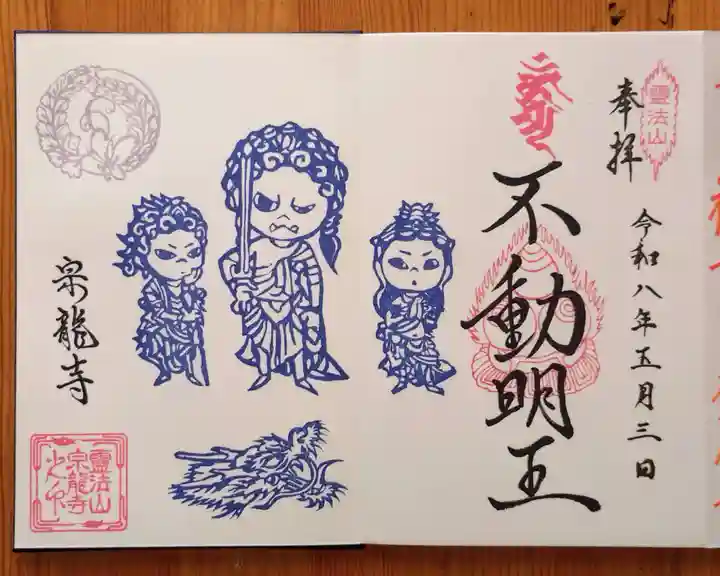 靈法山
奉拝
令和八年五月三日
不動明王
宗龍寺
靈法山
宗龍寺
之印